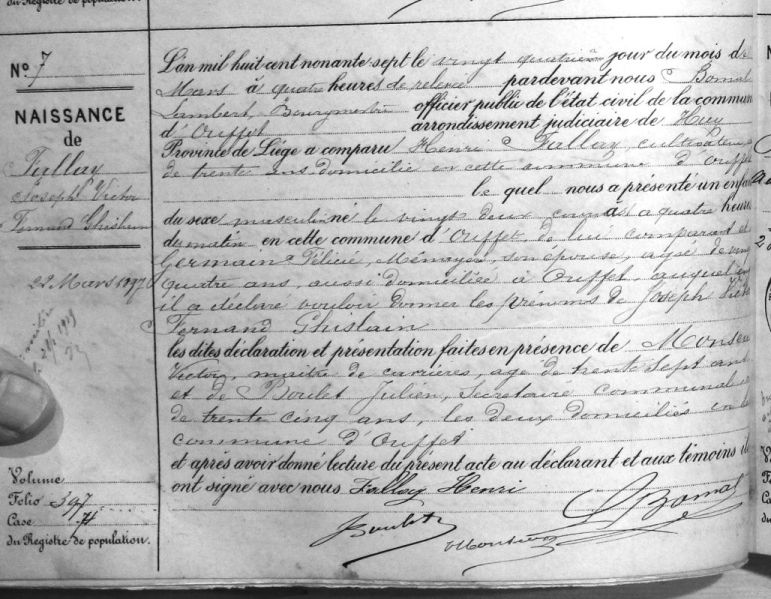 du Registre de population.
Nº 7
NAISSANCE
de
Fallay
Joseph Victor
Fernand Ghislain
22 Mars 1897
Volume
Folio 397
Case 74
du Registre de population.
L'an mil huit cent nonante sept le vingt quatrième jour du mois de
Mars à quatre heures de relevée pardevant nous Bomal
Lambert, Bourgmestre officier public de l'état civil de la commun
d'Ouffet arrondissement judiciaire de Huy
Province de Liége a comparu Henri Fallay, cultivateur
de trente ans domicilié en cette commune d'Ouffet
le quel nous a présenté un enfan
du sexe masculin né le vingt deux à quatre heures
du matin en cette commune d'Ouffet, de lui comparant et
Germain Félicie, Ménagère, son épouse, agée de vingt
quatre ans, aussi domiciliée à Ouffet auquel
il a déclaré vouloir donner les prénoms de Joseph Victor
Fernand Ghislain
les dites déclaration et présentation faites en présence de
Victor, maître de carrières, agé de trente sept ans
et de Boulet Julien, Secrétaire communal
de trente cinq ans, les deux domiciliés en
commune d'Ouffet
et après avoir donné lecture du présent acte au déclarant et aux témoins ils
ont signé avec nous Fallay Henri
JBoulet
LBomal